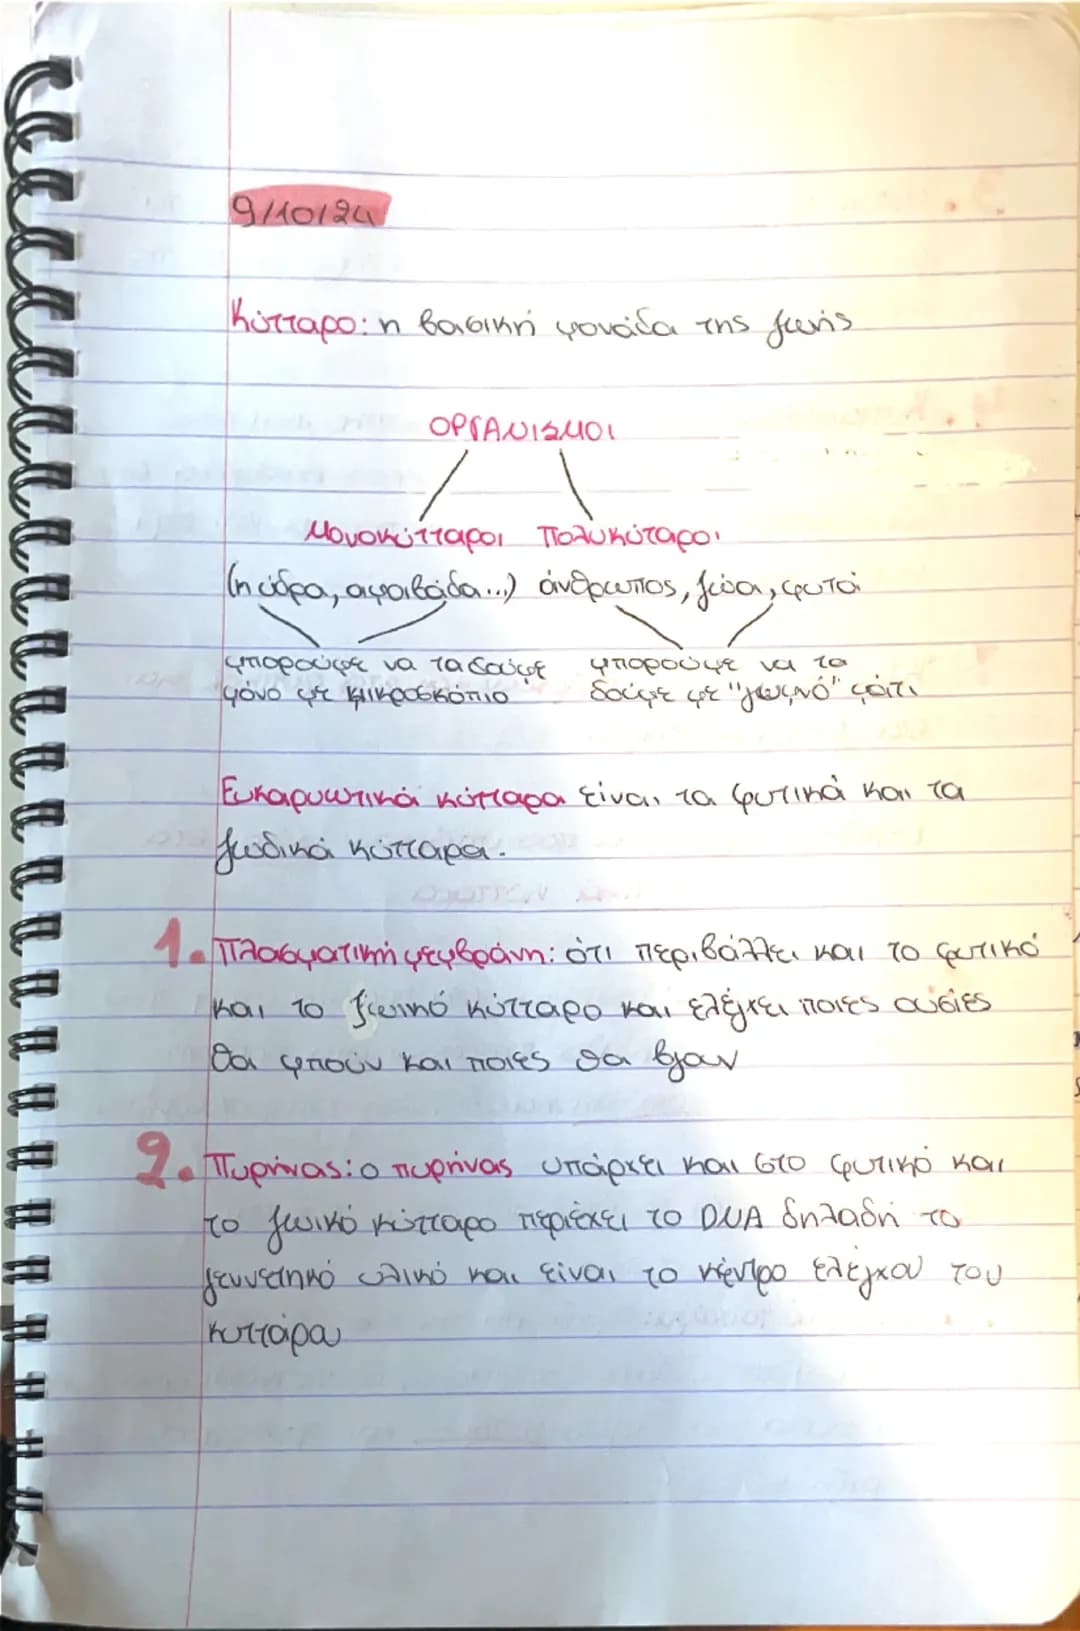 9/10/24
Κύτταρο: η βασική μονάδα της ζωής
ΟΡΓΑΝΙΣΜΟΙ
Μονοκύτταροι Πολυκύταροι
(η ύδρα, αμοιβάδα...) άνθρωπος, ζώα, φυτά
μπορούμε να τα δούμε μπορούμε να το
μόνο με μικροσκόπιο δούμε με "γυμνό" μάτι
Ευκαρυωτικά κύτταρα είναι τα φυτικά και τα
ζωδικά κύτταρα.
1. Πλασματική μεμβράνη: ότι περιβάλλει και το φυτικό
και το ζωικό κύτταρο και ελέγχει ποιες ουσίες
θα μπούν και ποιες θα βγαν
2. Πυρήνας: ο πυρήνας υπάρχει και στο φυτικό και
το ζωικό κύτταρο περιέχει το DNA δηλαδή το
γεννετικό υλικό και είναι το κέντρο ελέγχου του
κυττάρα